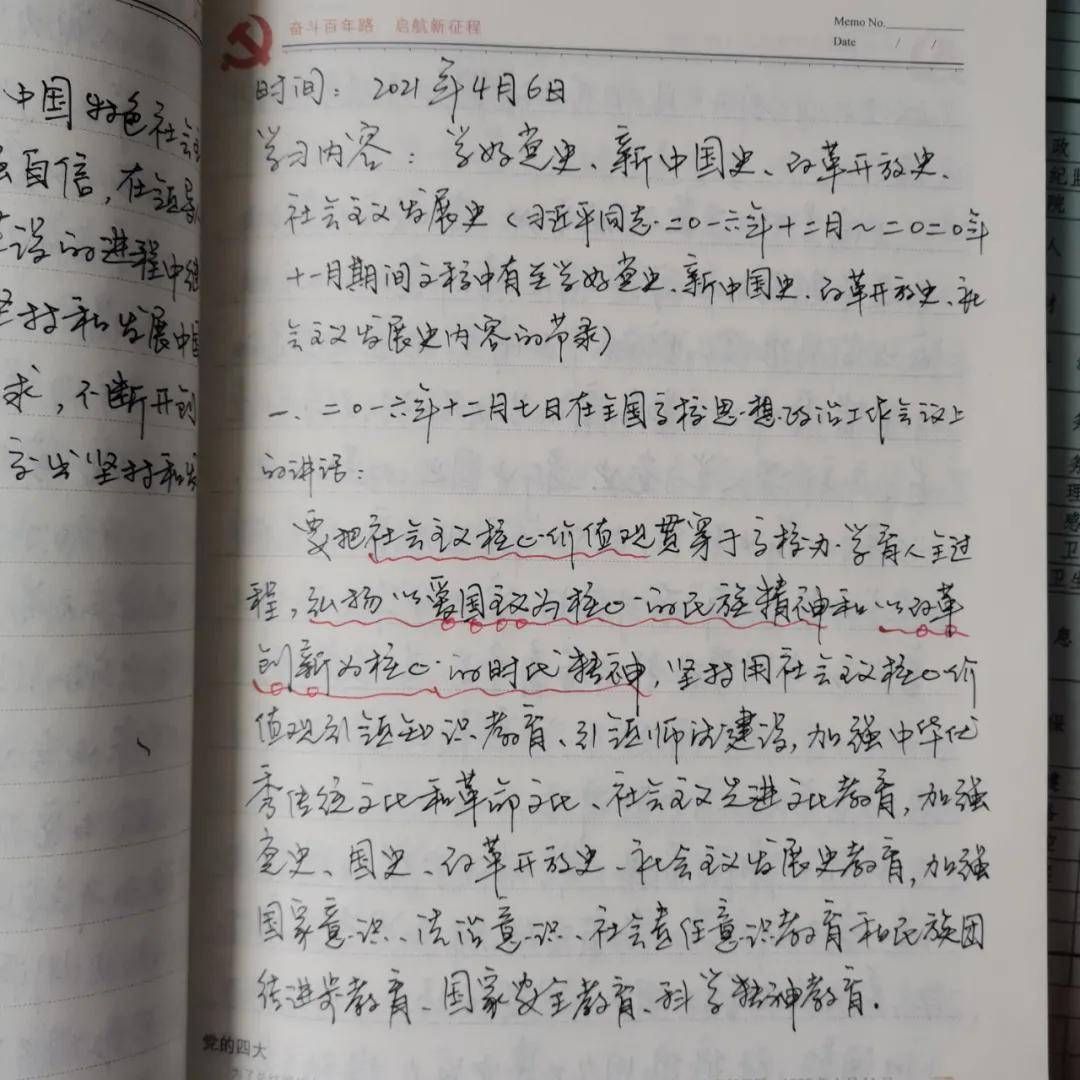 奋斗百年路 启航新征程
Memo No.
Date / /
中国特色社会主
自信，在领导人
建设的进程中继
坚持和发展中国
求，不断开创
坚持和发
时间：2021年4月6日
学习内容：学好党史、新中国史、改革开放史、
社会主义发展史（习近平同志二〇一六年十二月～二〇二〇年
十一月期间文稿中有关学好党史、新中国史、改革开放史、社
会主义发展史内容的节录）
一、二〇一六年十二月七日在全国高校思想政治工作会议上
的讲话：
要把社会主义核心价值观贯穿于高校办学育人全过
程，弘扬以爱国主义为核心的民族精神和以改革
创新为核心的时代精神，坚持用社会主义核心价
值观引领知识教育、引领师德建设，加强中华优
秀传统文化和革命文化、社会主义先进文化教育，加强
党史、国史、改革开放史、社会主义发展史教育，加强
国家意识、法治意识、社会责任意识教育和民族团
结进步教育、国家安全教育、科学精神教育．
党的四大
政
纪监
院
人
才
理
感
卫
卫生
息
保